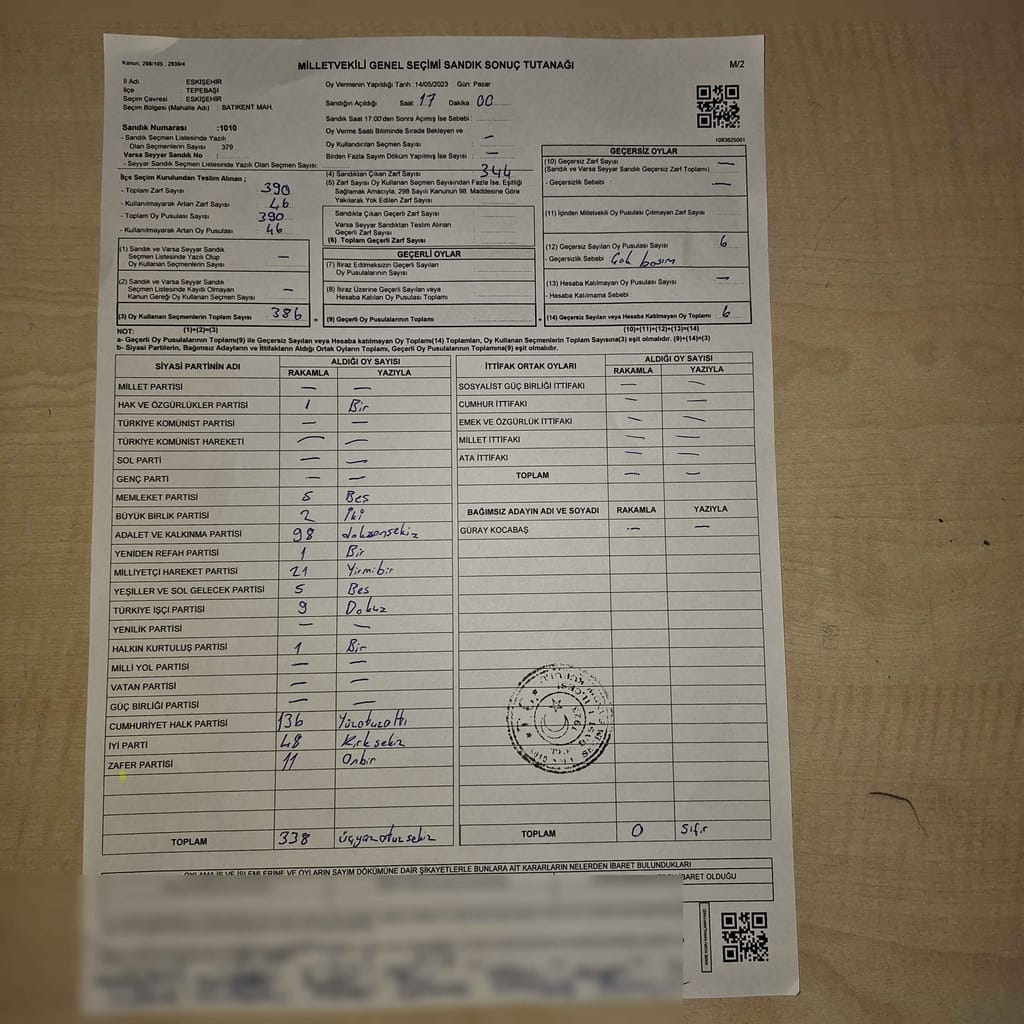 Kanun, 298/105 , 2839/4
MİLLETVEKİLİ GENEL SEÇİMİ SANDIK SONUÇ TUTANAĞI
M/2
İl Adı ESKİŞEHİR
İlçe TEPEBAŞI
Seçim Çevresi ESKİŞEHİR
Seçim Bölgesi (Mahalle Adı) : BATIKENT MAH.
Sandık Numarası :1010
- Sandık Seçmen Listesinde Yazılı
Olan Seçmenlerin Sayısı 379
Varsa Seyyar Sandık No :
- Seyyar Sandık Seçmen Listesinde Yazılı Olan Seçmen Sayısı:
İlçe Seçim Kurulundan Teslim Alınan ;
- Toplam Zarf Sayısı 390
- Kullanılmayarak Artan Zarf Sayısı 46
- Toplam Oy Pusulası Sayısı 390
- Kullanılmayarak Artan Oy Pusulası Sayısı 46
(1) Sandık ve Varsa Seyyar Sandık
Seçmen Listesinde Yazılı Olup
Oy Kullanan Seçmenlerin Sayısı —
(2) Sandık ve Varsa Seyyar Sandık
Seçmen Listesinde Kayıtlı Olmayan
Kanun Gereği Oy Kullanan Seçmen Sayısı —
(3) Oy Kullanan Seçmenlerin Toplam Sayısı 386
(1)+(2)=(3)
Oy Vermenin Yapıldığı Tarih :14/05/2023 Gün: Pazar
Sandığın Açıldığı Saat 17 Dakika 00
Sandık Saat 17:00'den Sonra Açılmış İse Sebebi :
Oy Verme Saati Bitiminde Sırada Bekleyen ve
Oy Kullandırılan Seçmen Sayısı —
Birden Fazla Sayım Döküm Yapılmış İse Sayısı —
(4) Sandıktan Çıkan Zarf Sayısı 344
(5) Zarf Sayısı Oy Kullanan Seçmen Sayısından Fazla İse, Eşitliği
Sağlamak Amacıyla, 298 Sayılı Kanunun 98. Maddesine Göre
Yakılarak Yok Edilen Zarf Sayısı
Sandıkla Çıkan Geçerli Zarf Sayısı
Varsa Seyyar Sandıktan Teslim Alınan
Geçerli Zarf Sayısı
(6) Toplam Geçerli Zarf Sayısı
GEÇERLİ OYLAR
(7) İtiraz Edilmeksizin Geçerli Sayılan
Oy Pusulalarının Sayısı
(8) İtiraz Üzerine Geçerli Sayılan veya
Hesaba Katılan Oy Pusulası Toplamı
= (9) Geçerli Oy Pusulalarının Toplamı
1083625001
GEÇERSİZ OYLAR
(10) Geçersiz Zarf Sayısı —
(Sandık ve Varsa Seyyar Sandık Geçersiz Zarf Toplamı)
- Geçersizlik Sebebi : —
(11) İçinden Milletvekili Oy Pusulası Çıkmayan Zarf Sayısı
(12) Geçersiz Sayılan Oy Pusulası Sayısı 6
- Geçersizlik Sebebi Çok basım
(13) Hesaba Katılmayan Oy Pusulası Sayısı —
- Hesaba Katılmama Sebebi :
+ (14) Geçersiz Sayılan veya Hesaba Katılmayan Oy Pusulası Toplamı 6
(10)+(11)+(12)+(13)=(14)
NOT:
a- Geçerli Oy Pusulalarının Toplamı(9) ile Geçersiz Sayılan veya Hesaba katılmayan Oy Toplamı(14) Toplamları, Oy Kullanan Seçmenlerin Toplam Sayısına(3) eşit olmalıdır. (9)+(14)=(3)
b- Siyasi Partilerin, Bağımsız Adayların ve İttifakların Aldığı Ortak Oyların Toplamı, Geçerli Oy Pusulalarının Toplamına(9) eşit olmalıdır.
SİYASİ PARTİNİN ADI ALDIĞI OY SAYISI
RAKAMLA YAZIYLA
MİLLET PARTİSİ — —
HAK VE ÖZGÜRLÜKLER PARTİSİ 1 Bir
TÜRKİYE KOMÜNİST PARTİSİ — —
TÜRKİYE KOMÜNİST HAREKETİ — —
SOL PARTİ — —
GENÇ PARTİ — —
MEMLEKET PARTİSİ 5 Beş
BÜYÜK BİRLİK PARTİSİ 2 İki
ADALET VE KALKINMA PARTİSİ 98 doksansekiz
YENİDEN REFAH PARTİSİ 1 Bir
MİLLİYETÇİ HAREKET PARTİSİ 21 Yirmibir
YEŞİLLER VE SOL GELECEK PARTİSİ 5 Beş
TÜRKİYE İŞÇİ PARTİSİ 9 Dokuz
YENİLİK PARTİSİ — —
HALKIN KURTULUŞ PARTİSİ 1 Bir
MİLLİ YOL PARTİSİ — —
VATAN PARTİSİ — —
GÜÇ BİRLİĞİ PARTİSİ — —
CUMHURİYET HALK PARTİSİ 136 Yüzotuzaltı
İYİ PARTİ 48 Kırksekiz
ZAFER PARTİSİ 11 Onbir
TOPLAM 338 üçyüzotuzsekiz
İTTİFAK ORTAK OYLARI ALDIĞI OY SAYISI
RAKAMLA YAZIYLA
SOSYALİST GÜÇ BİRLİĞİ İTTİFAKI — —
CUMHUR İTTİFAKI — —
EMEK VE ÖZGÜRLÜK İTTİFAKI — —
MİLLET İTTİFAKI — —
ATA İTTİFAKI — —
TOPLAM — —
BAĞIMSIZ ADAYIN ADI VE SOYADI RAKAMLA YAZIYLA
GÜRAY KOCABAŞ — —
TOPLAM 0 Sıfır
OYLAMA İŞ VE İŞLEMLERİNE VE OYLARIN SAYIM DÖKÜMÜNE DAİR ŞİKAYETLERLE BUNLARA AİT KARARLARIN NELERDEN İBARET BULUNDUKLARI
İBARET OLDUĞU